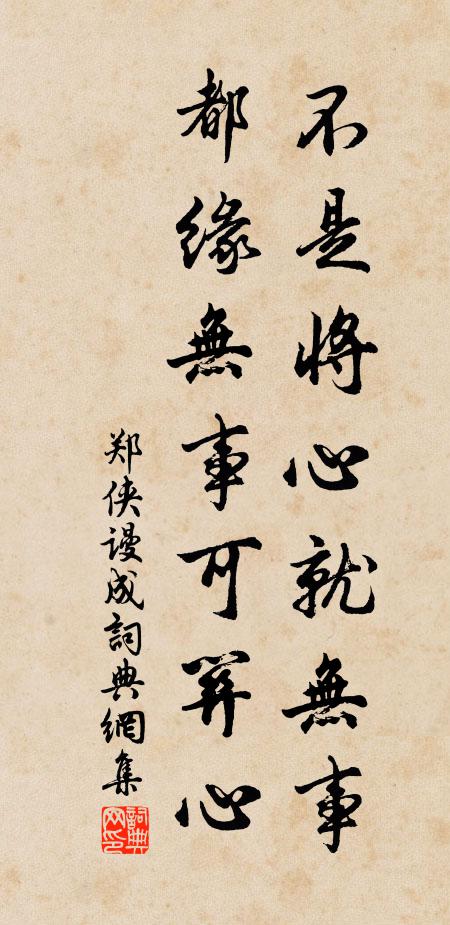 不是將心就無事
都緣無事可心
郑侠谩成詞典網集
詞典
网印